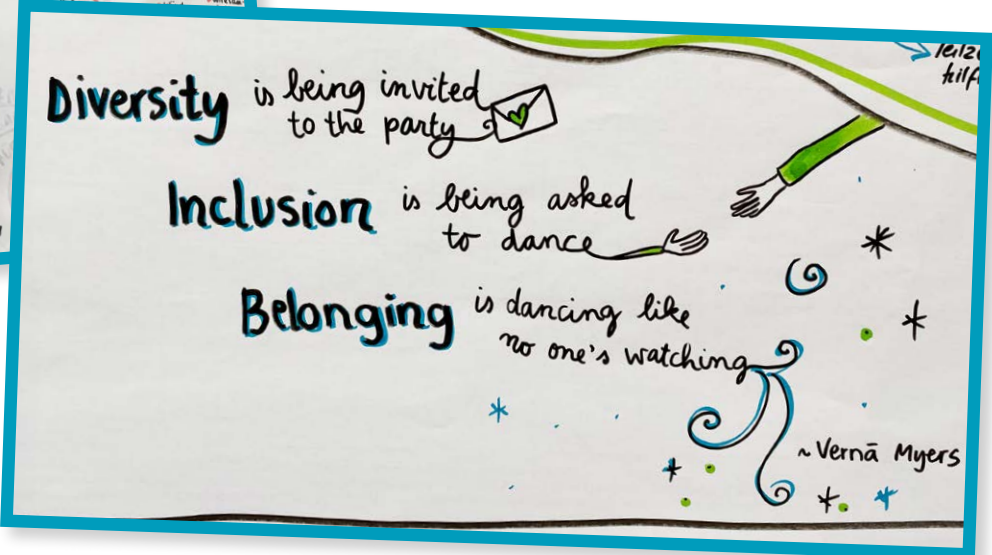 Diversity is being invited
to the party
Inclusion is being asked
to dance
Belonging is dancing like
no one's watching
~Vernā Myers